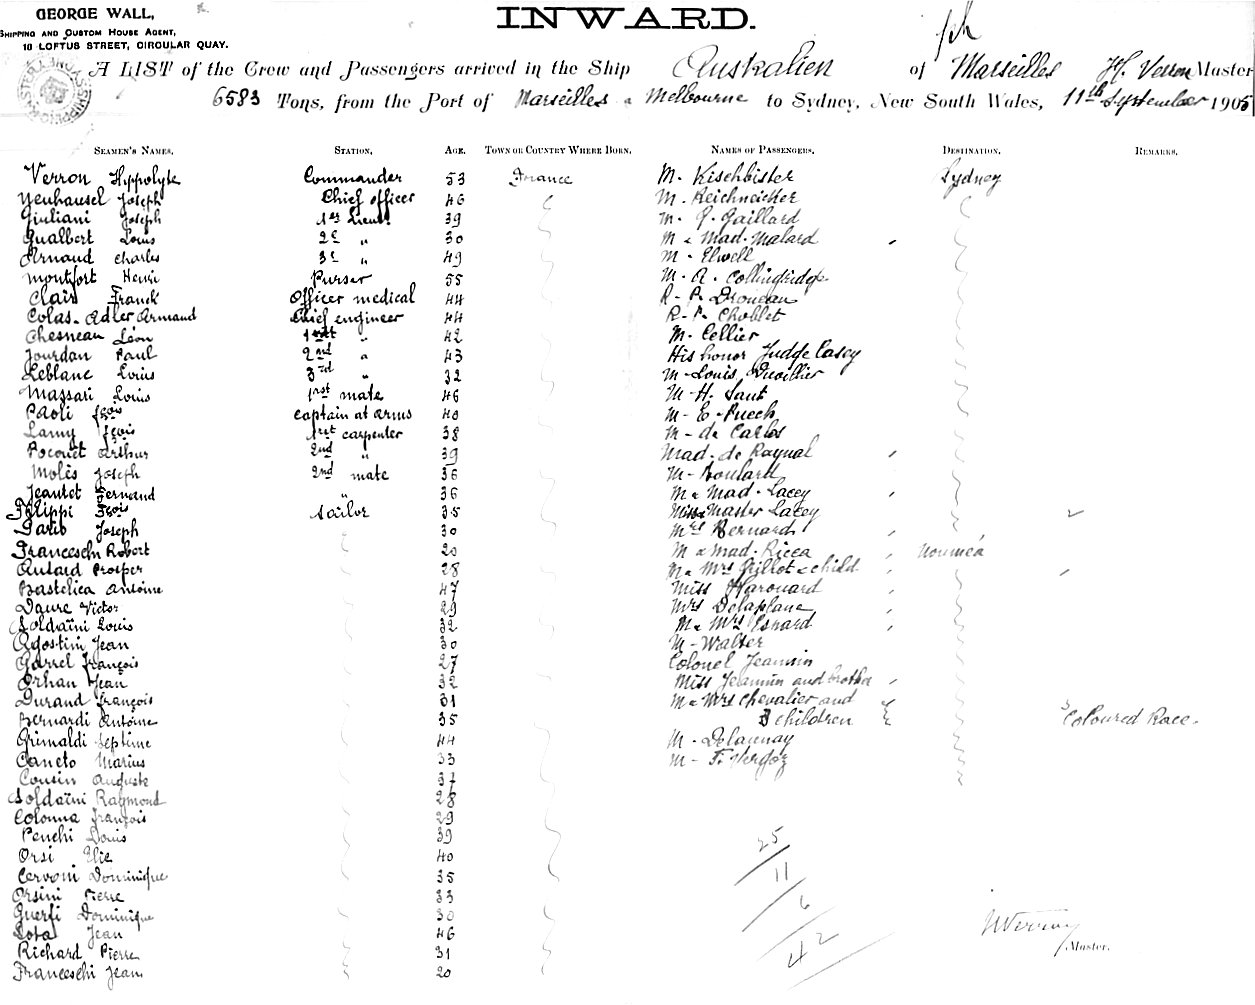 GEORGE WALL,
SHIPPING AND CUSTOM HOUSE AGENT,
10 LOFTUS STREET, CIRCULAR QUAY.
INWARD.
A LIST of the Crew and Passengers arrived in the Ship Australien of Marseilles H. Verron Master
6583 Tons, from the Port of Marseilles & Melbourne to Sydney, New South Wales, 11th September 1905
SEAMEN'S NAMES. STATION. AGE. TOWN OR COUNTRY WHERE BORN. NAMES OF PASSENGERS. DESTINATION. REMARKS.
Verron Hippolyte Commander 53 France M. Kischbister Sydney
Neuhausel Joseph Chief officer 46 M. Reichneicker
Giuliani Joseph 1er Lieut 39 M. G. Gaillard
Gualbert Louis 2e " 30 M & Mad. Malard
Arnaud Charles 3e " 49 M. Elwell
Montfort Henri Purser 55 M. A. Collingridge
Clair Franck Officer medical 44 R. P. Droueau
Colas-Adler Armand Chief engineer 44 R. P. Choblet
Chesneau Léon 1rst " 42 M. Cellier
Jourdan Paul 2nd " 43 His honor Judge Casey
Leblanc Louis 3rd " 32 M. Louis Duvillier
Massari Louis 1rst mate 46 M. H. Saut
Paoli fçois captain at arms 40 M. E. Puech
Lamy fçois 1rst carpenter 38 M. de Carlos
Poconet Arthur 2nd " 39 Mad. de Raynal
Molès Joseph 2nd mate 36 M. Boulard
Jeantet Fernand " 36 M & Mad. Lacey
Filippi fçois sailor 35 Miss & Master Lacey
David Joseph 30 Mrs Bernard
Franceschi Robert 20 M & Mad. Ricca Nouméa
Autard Prosper 28 M & Mrs Gillot & child
Bastelica Antoine 47 Miss Harouard
Daure Victor 29 Mrs Delaplane
Soldaïni Louis 32 M & Mrs Esnard
Agostini Jean 30 M. Walter
Garrel François 27 Colonel Jeannin
Orhan Jean 32 Miss Jeannin and brother
Durand François 31 M & Mrs Chevalier and
Bernardi Antoine 35 3 children 5 Coloured Race.
Grimaldi Septime 44 M. Delaunay
Caneto Marius 33 M. F. Vergoz
Cousin Auguste 37
Soldaïni Raymond 28
Colonna François 29
Penchi Louis 39
Orsi Elie 40
Cervoni Dominique 35
Orsini Pierre 33
Guerfi Dominique 30
Lota Jean 46
Richard Pierre 31
Franceschi Jean 20
25
11
6
42
HVerron
Master.